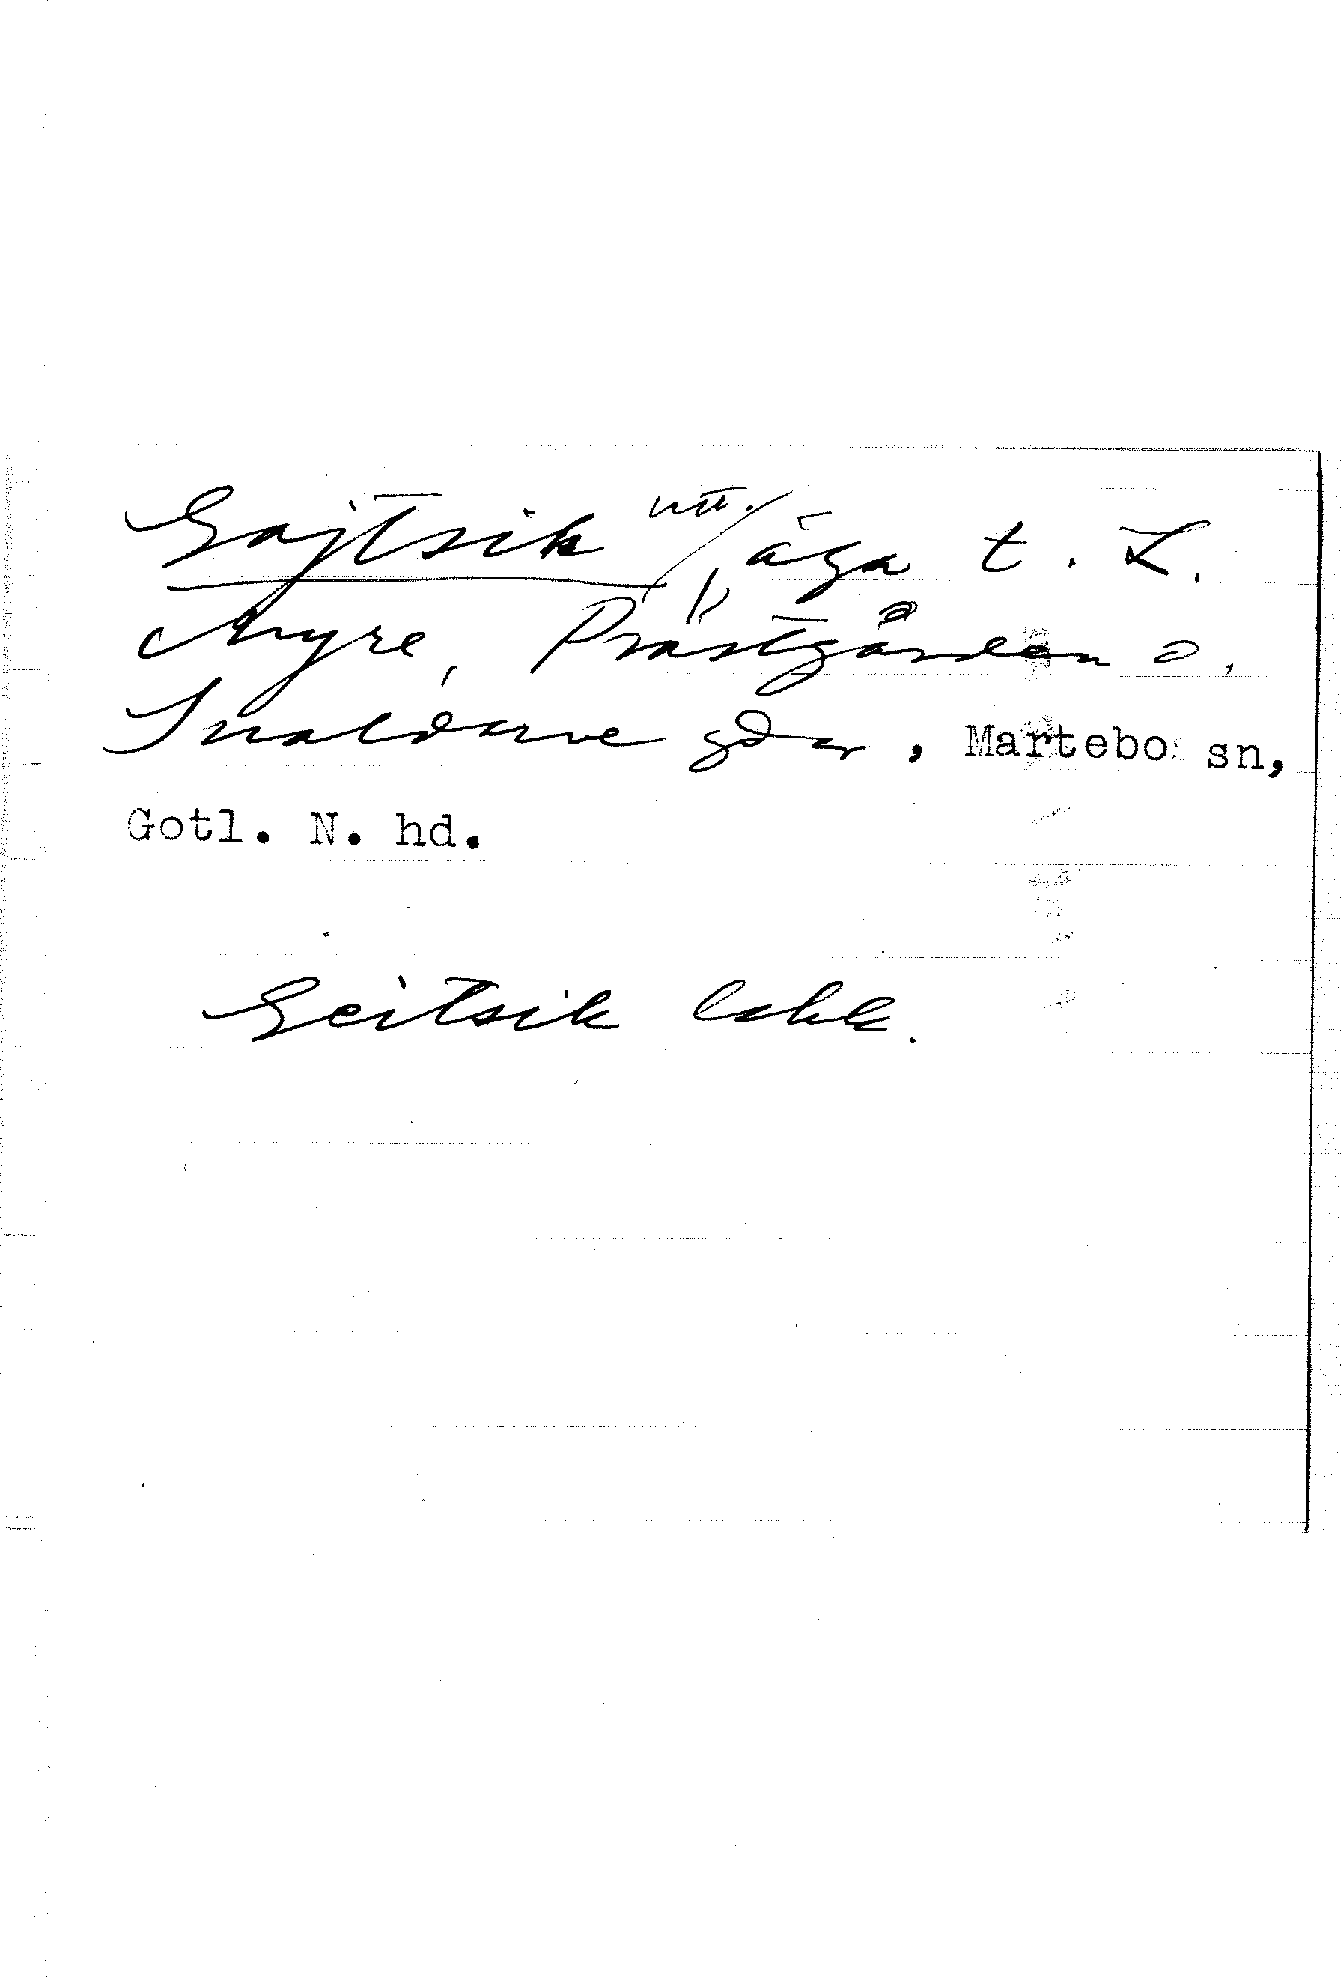 Gajtsik utt., äga t. L.
Myre, Prästgården o.
Snaldarve gdar, Martebo sn,
Gotl. N. hd.
Geitsik lakk.